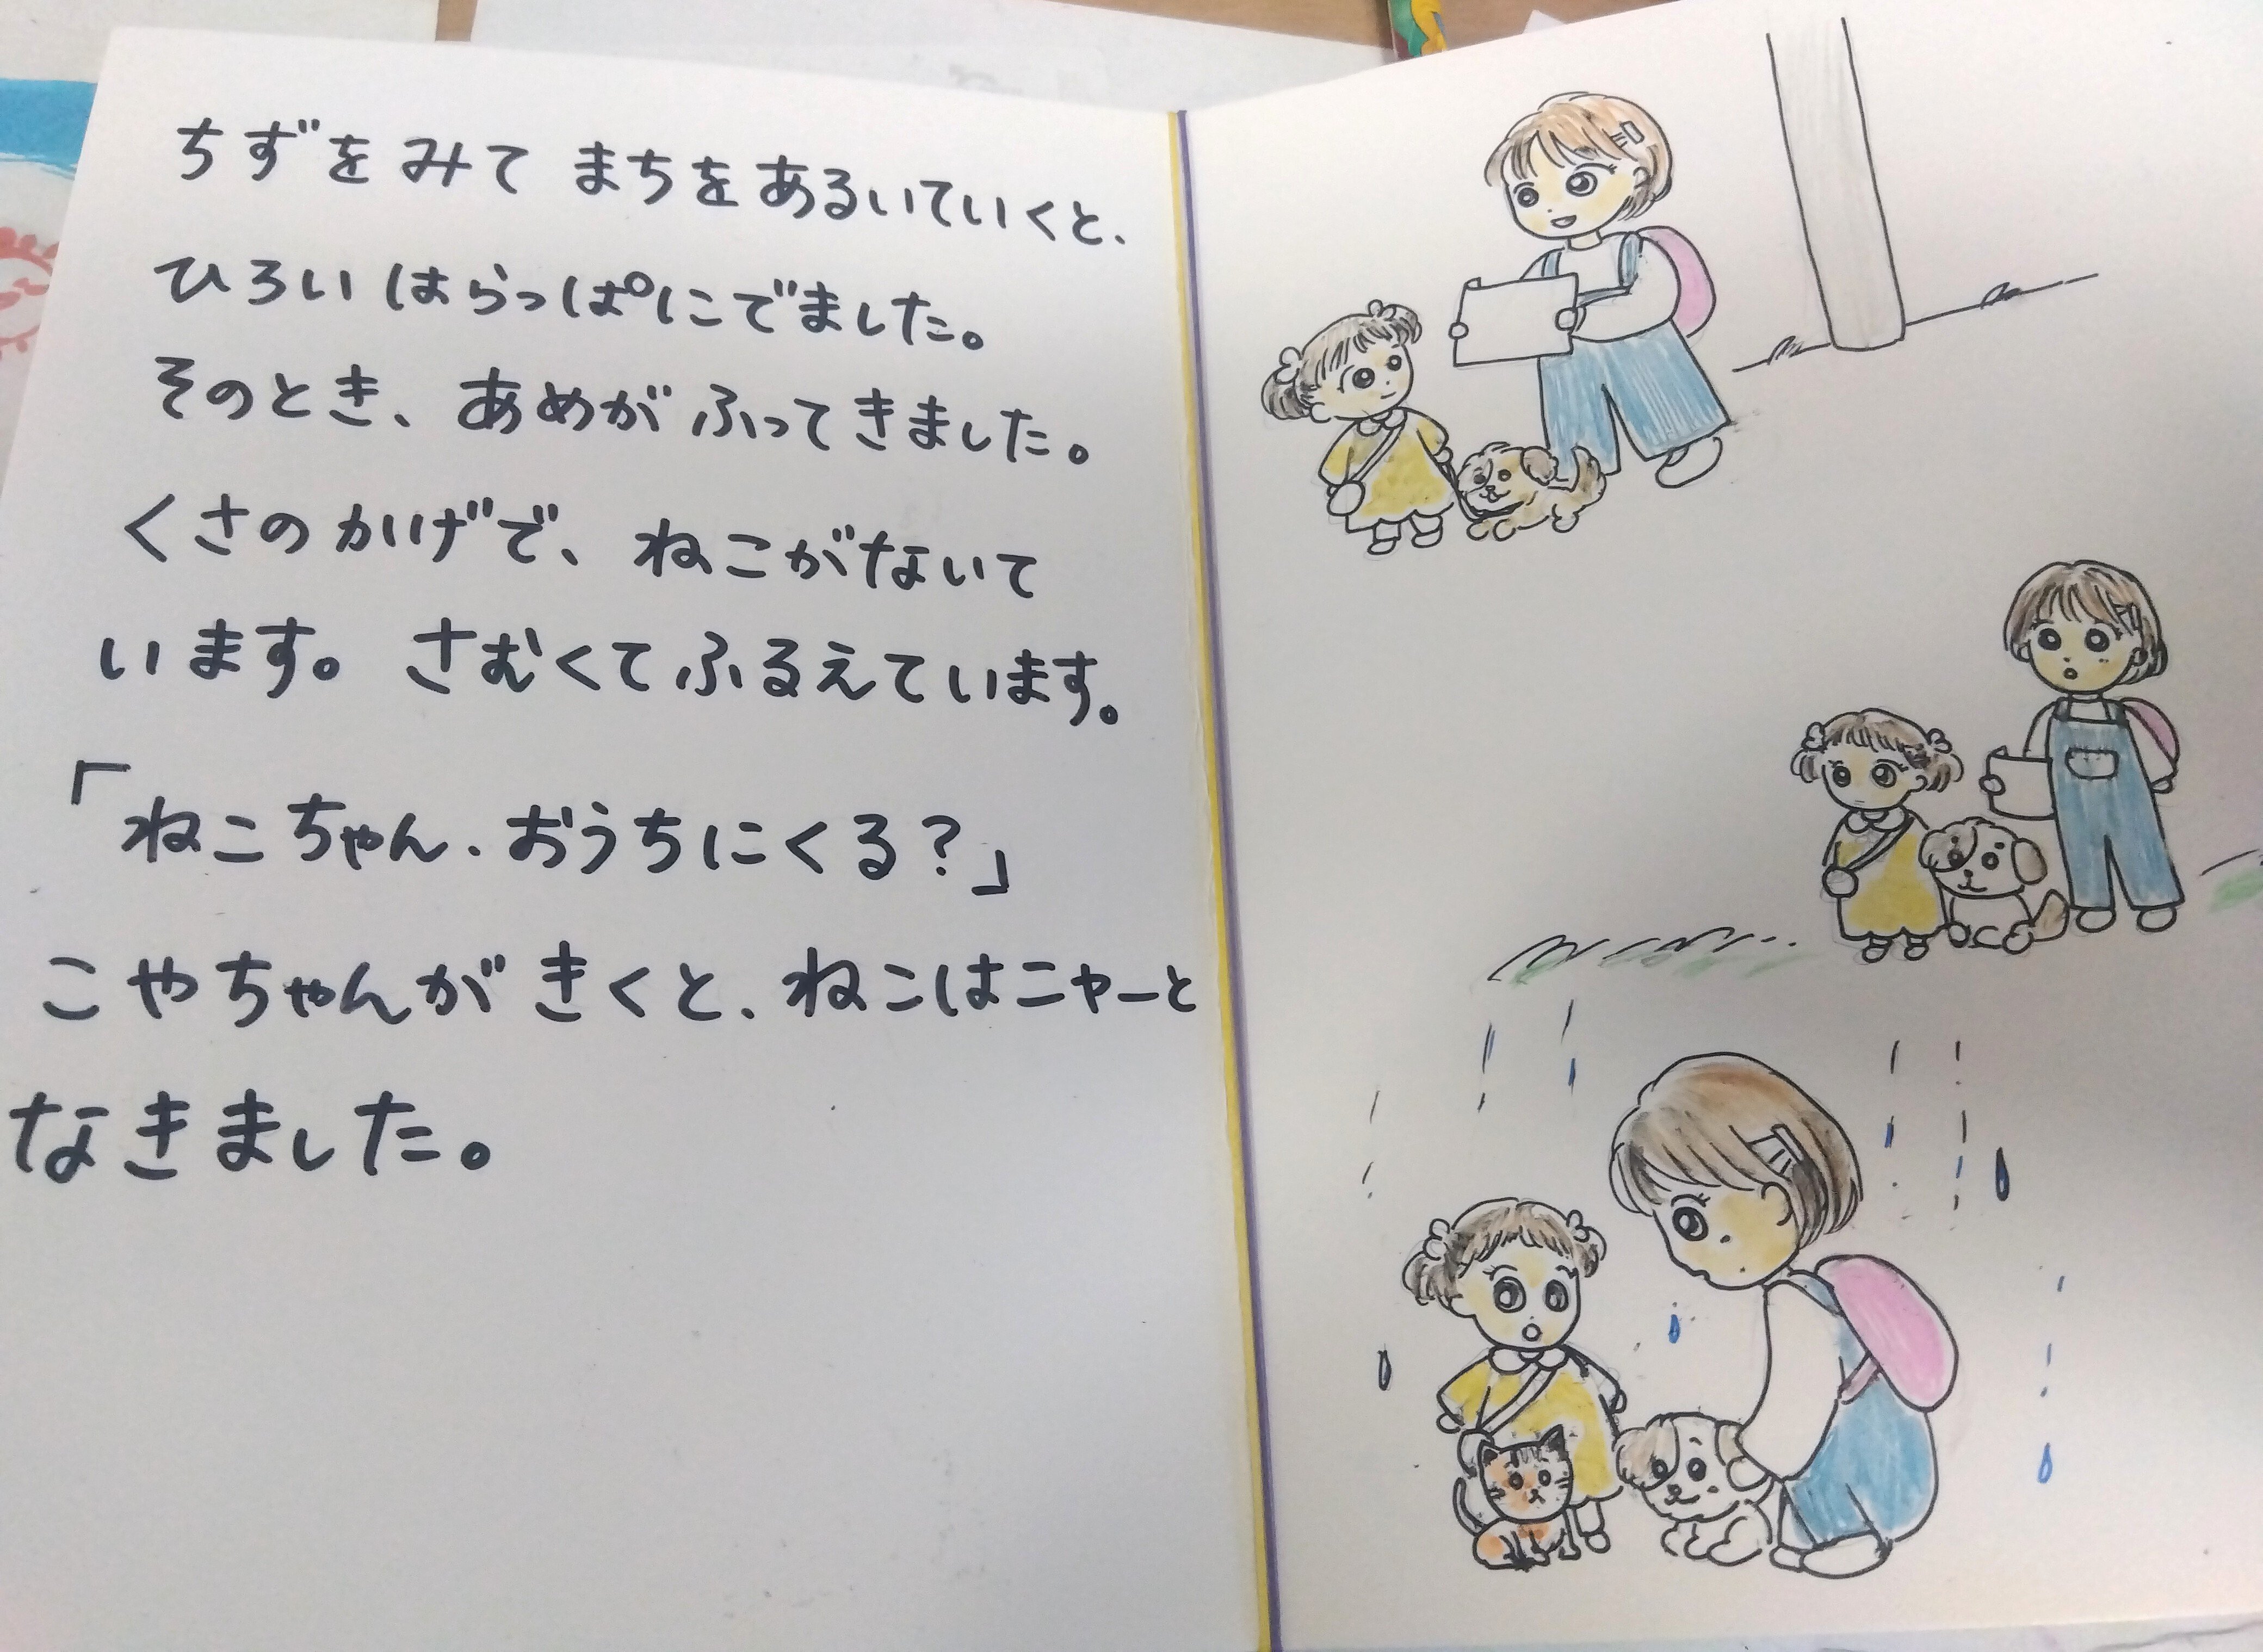 ちずを みて まちを あるいていくと、
ひろい はらっぱに でました。
そのとき、あめが ふってきました。
くさの かげで、ねこがないて
います。さむくて ふるえています。
「ねこちゃん、おうちにくる？」
こやちゃんが きくと、ねこはニャーと
なきました。